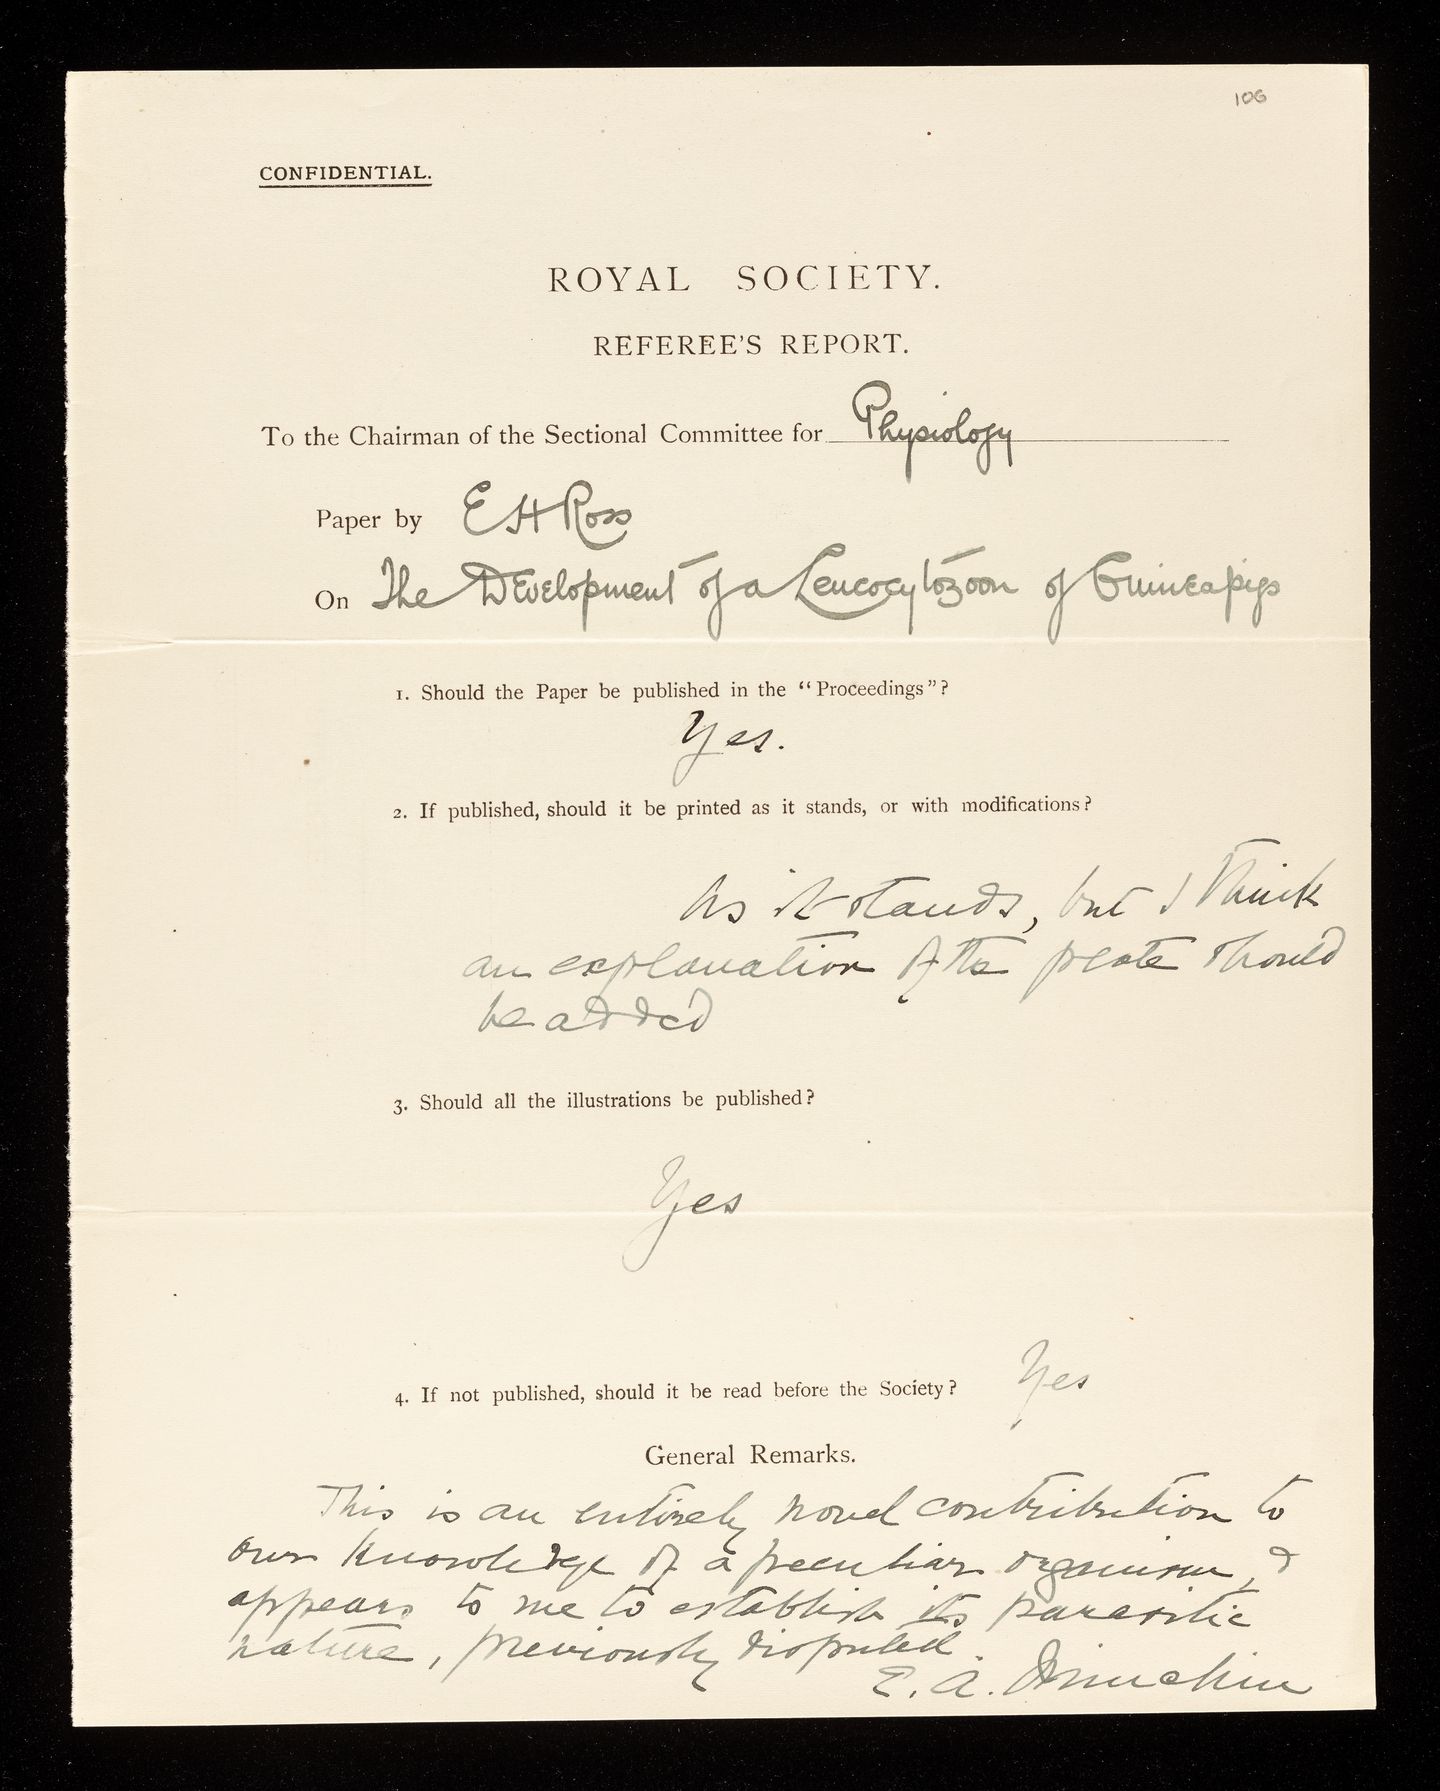 106
CONFIDENTIAL.
ROYAL SOCIETY.
REFEREE'S REPORT.
To the Chairman of the Sectional Committee for Physiology
Paper by E H Ross
On The Development of a Leucocytozoon of Guineapigs
1. Should the Paper be published in the "Proceedings"?
Yes.
2. If published, should it be printed as it stands, or with modifications?
As it stands, but I think
an explanation of the plate should
be added
3. Should all the illustrations be published?
Yes
4. If not published, should it be read before the Society? Yes
General Remarks.
This is an entirely novel contribution to
our knowledge of a peculiar organism, &
appears to me to establish its parasitic
nature, previously disputed.
E. A. Minchin